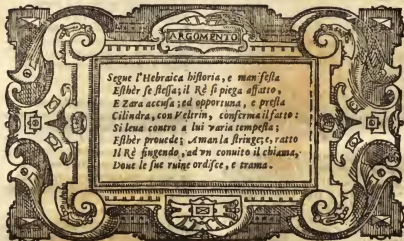 ARGOMENTO
Segue l'Hebraica hiſtoria, e manifeſta
Eſthèr ſe ſteſſa; il Rè ſi piega affatto,
E Zara accuſa; ed opportuna, e preſta
Cilindra, con Veltrin, conferma il fatto:
Si leua contro a lui varia tempeſta;
Eſthèr prouede; Aman la ſtringe; e, ratto
Il Rè fingendo, ad vn conuito il chiama,
Doue le ſue ruine ordiſce, e trama.